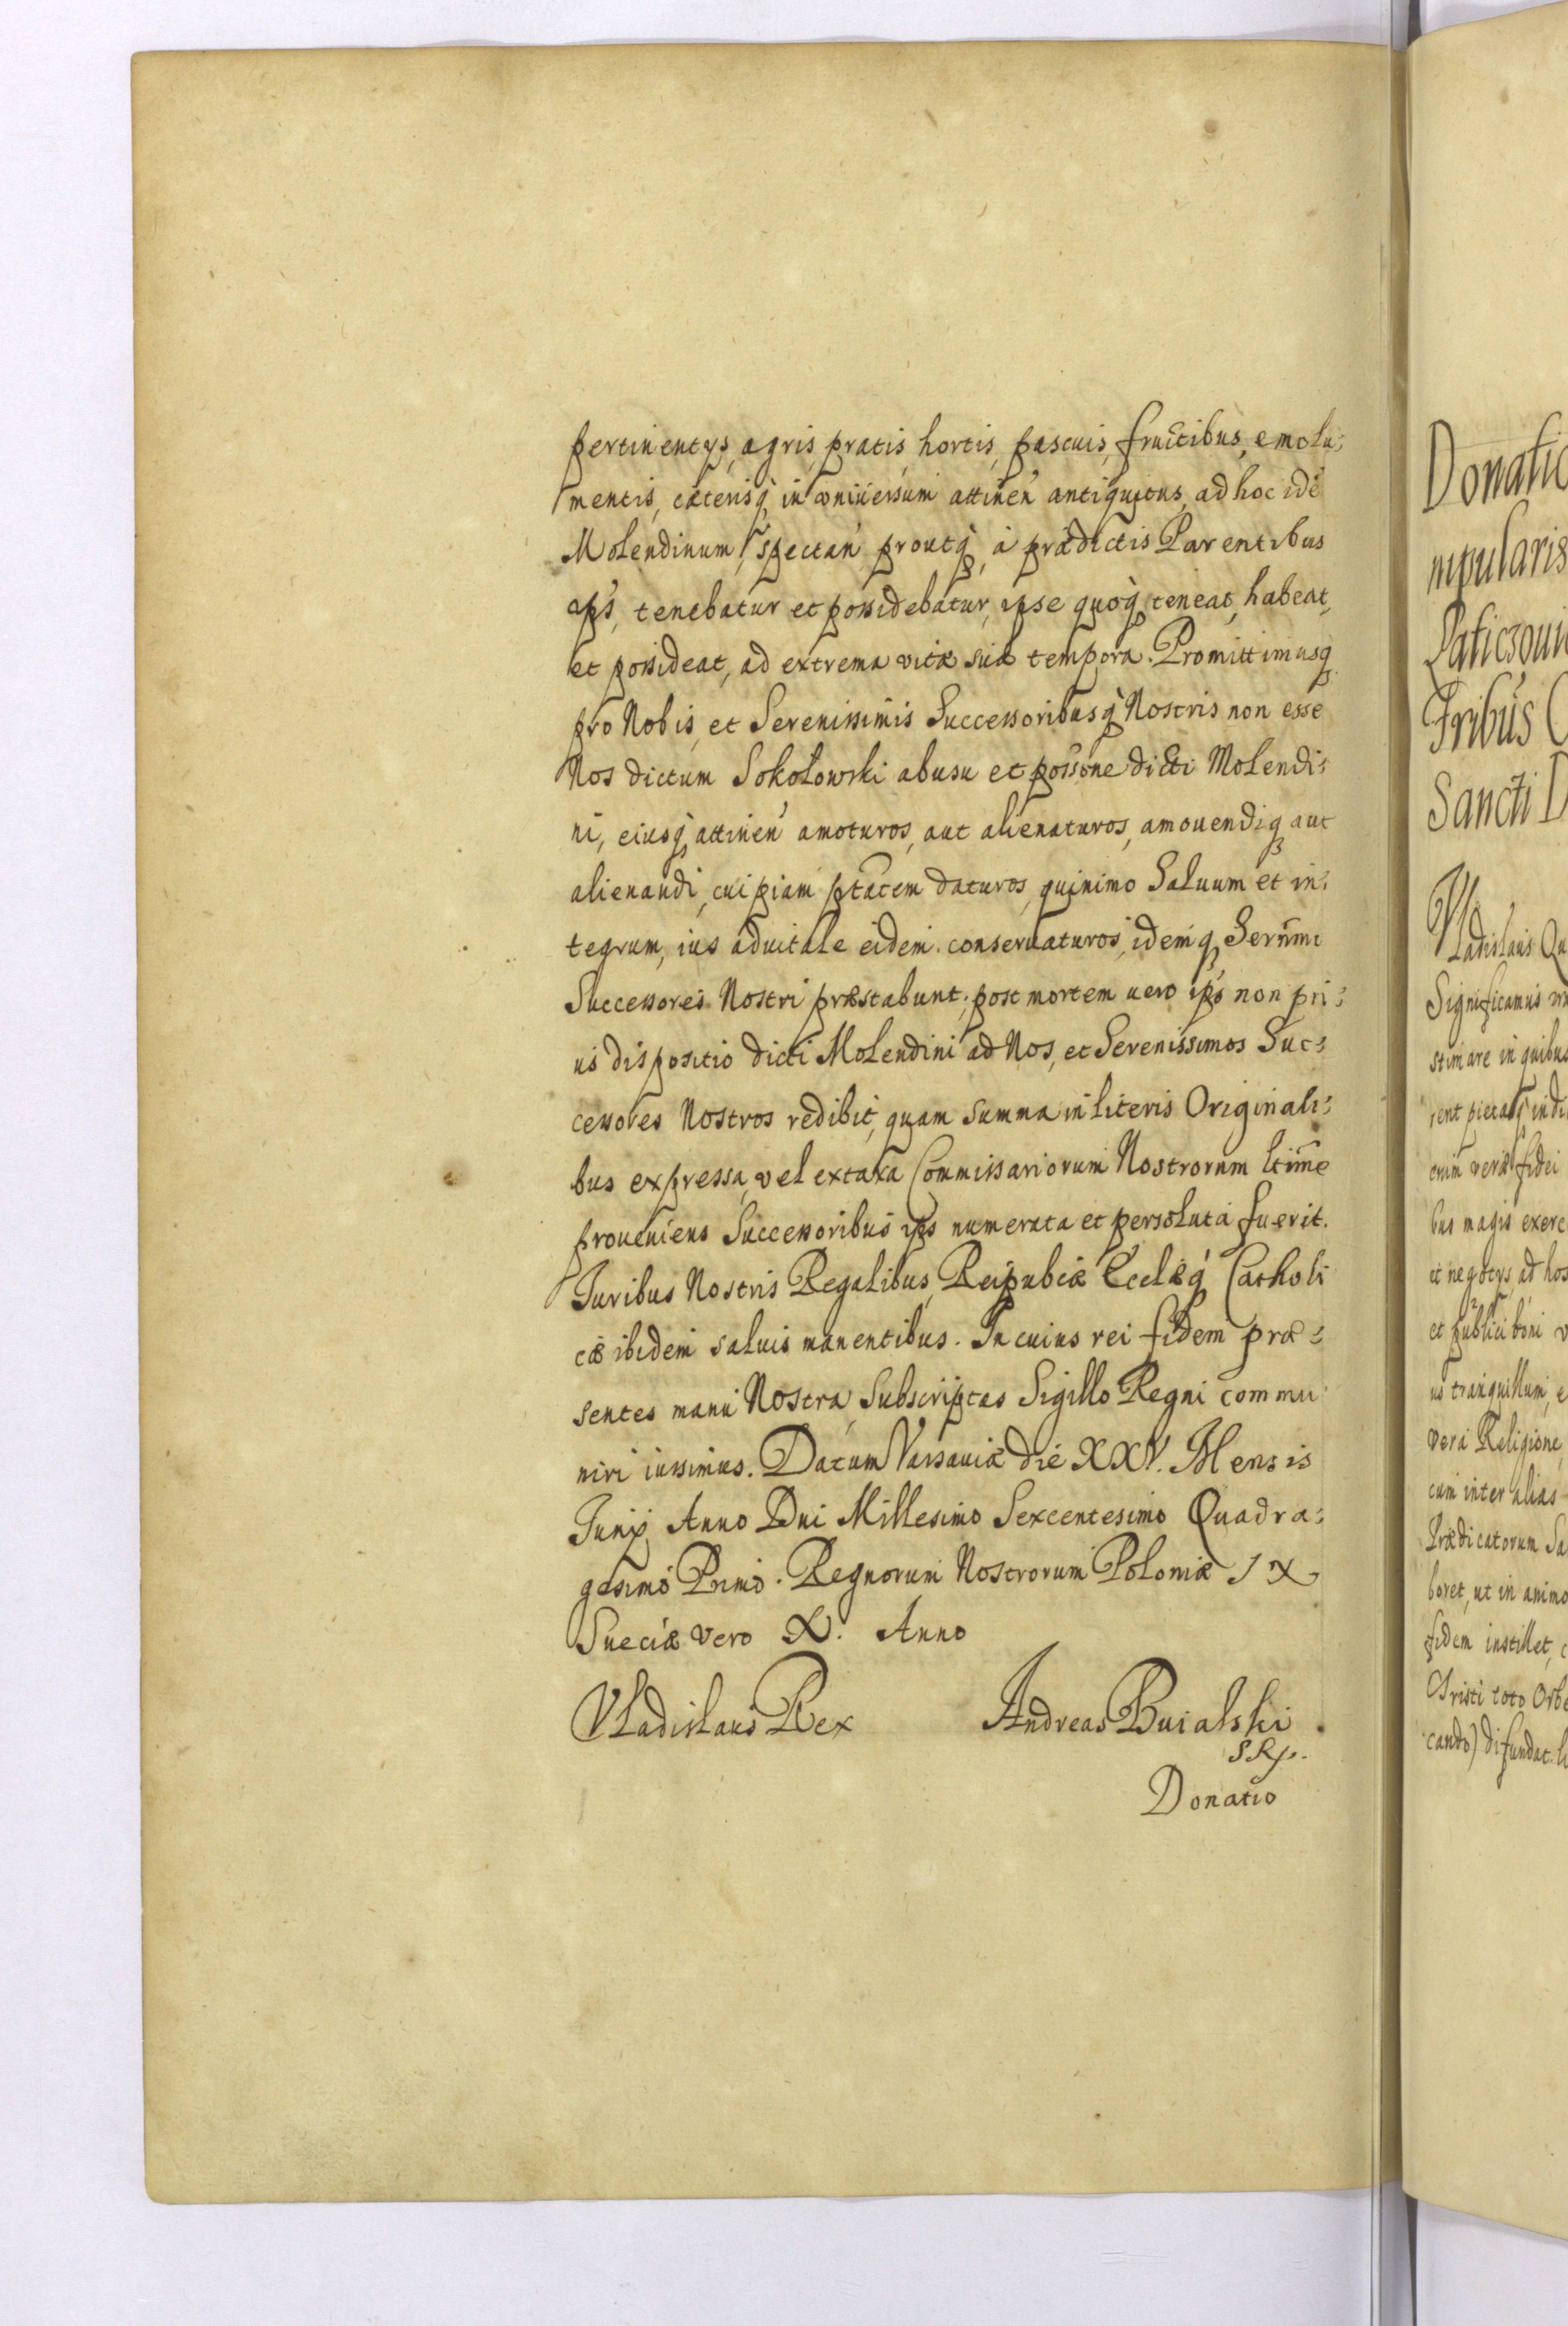 pertinentys, agris, pratis, hortis, pascuis, fructibus, emolu:
mentis, cæterisq́ in vniuersum attinen̄ antiquitus, ad hoc idē
Molendinum spectan̄ proutq́, à prædictis Parentibus
ips̄, tenebatur et possidebatur, ipse quoq́ teneat, habeat,
et possideat, ad extrema vitæ suæ tempora. Promittimusq́
pro Nobis, et Serenissimis Successoribusq́ Nostris non esse
Nos dictum Sokołowski abusu et possōne dicti Molendi:
ni, eiusq́ attinen̄ amoturos, aut alienaturos, amouendiq́ aut
alienandi, cuipiam ptātem daturos, quinimo Saluum et in:
tegrum, ius aduitale eidem conseruaturos, idemq́ Sernīmi
Successores Nostri præstabunt; post mortem uero ips̄ non pri:
us dispositio dicti Molendini ad Nos, et Serenissimos Suc:
cessores Nostros redibit, quam summa in literis Originali:
bus expressa, vel ex taxa Commissariorum Nostrorum ltīme
proueniens Successoribus ips̄ numerata et persoluta fuerit.
Juribus Nostris Regalibus, Reipubcæ Ecclæq́ Catholi
cæ ibidem saluis manentibus. In cuius rei fidem præ:
sentes manu Nostra Subscriptas Sigillo Regni commu
niri iussimus. Datum Varsauiæ die XXV. Mensis
Junij Anno Dni Millesimo Sexcentesimo Quadra:
gesimo Primo. Regnorum Nostrorum Poloniæ IX
Sueciæ vero X. Anno
Vladislaus Rex Andreas Buialski
SRp.
Donatio
Donatio
Laticzoui
Fribus
Sancti D
Vladislaus Qu
Significamus
stimare in quibus
rent pietas, indi
enim veræ fidei
bus magis exerc
et negotys, ad hos
et publici boni v
us tranquillum, e
vera Religione,
cum inter alias
Prædicatorum Sa
boret, ut in animo
fidem instillet, c
Christi toto Orbe
cando) difundat. li